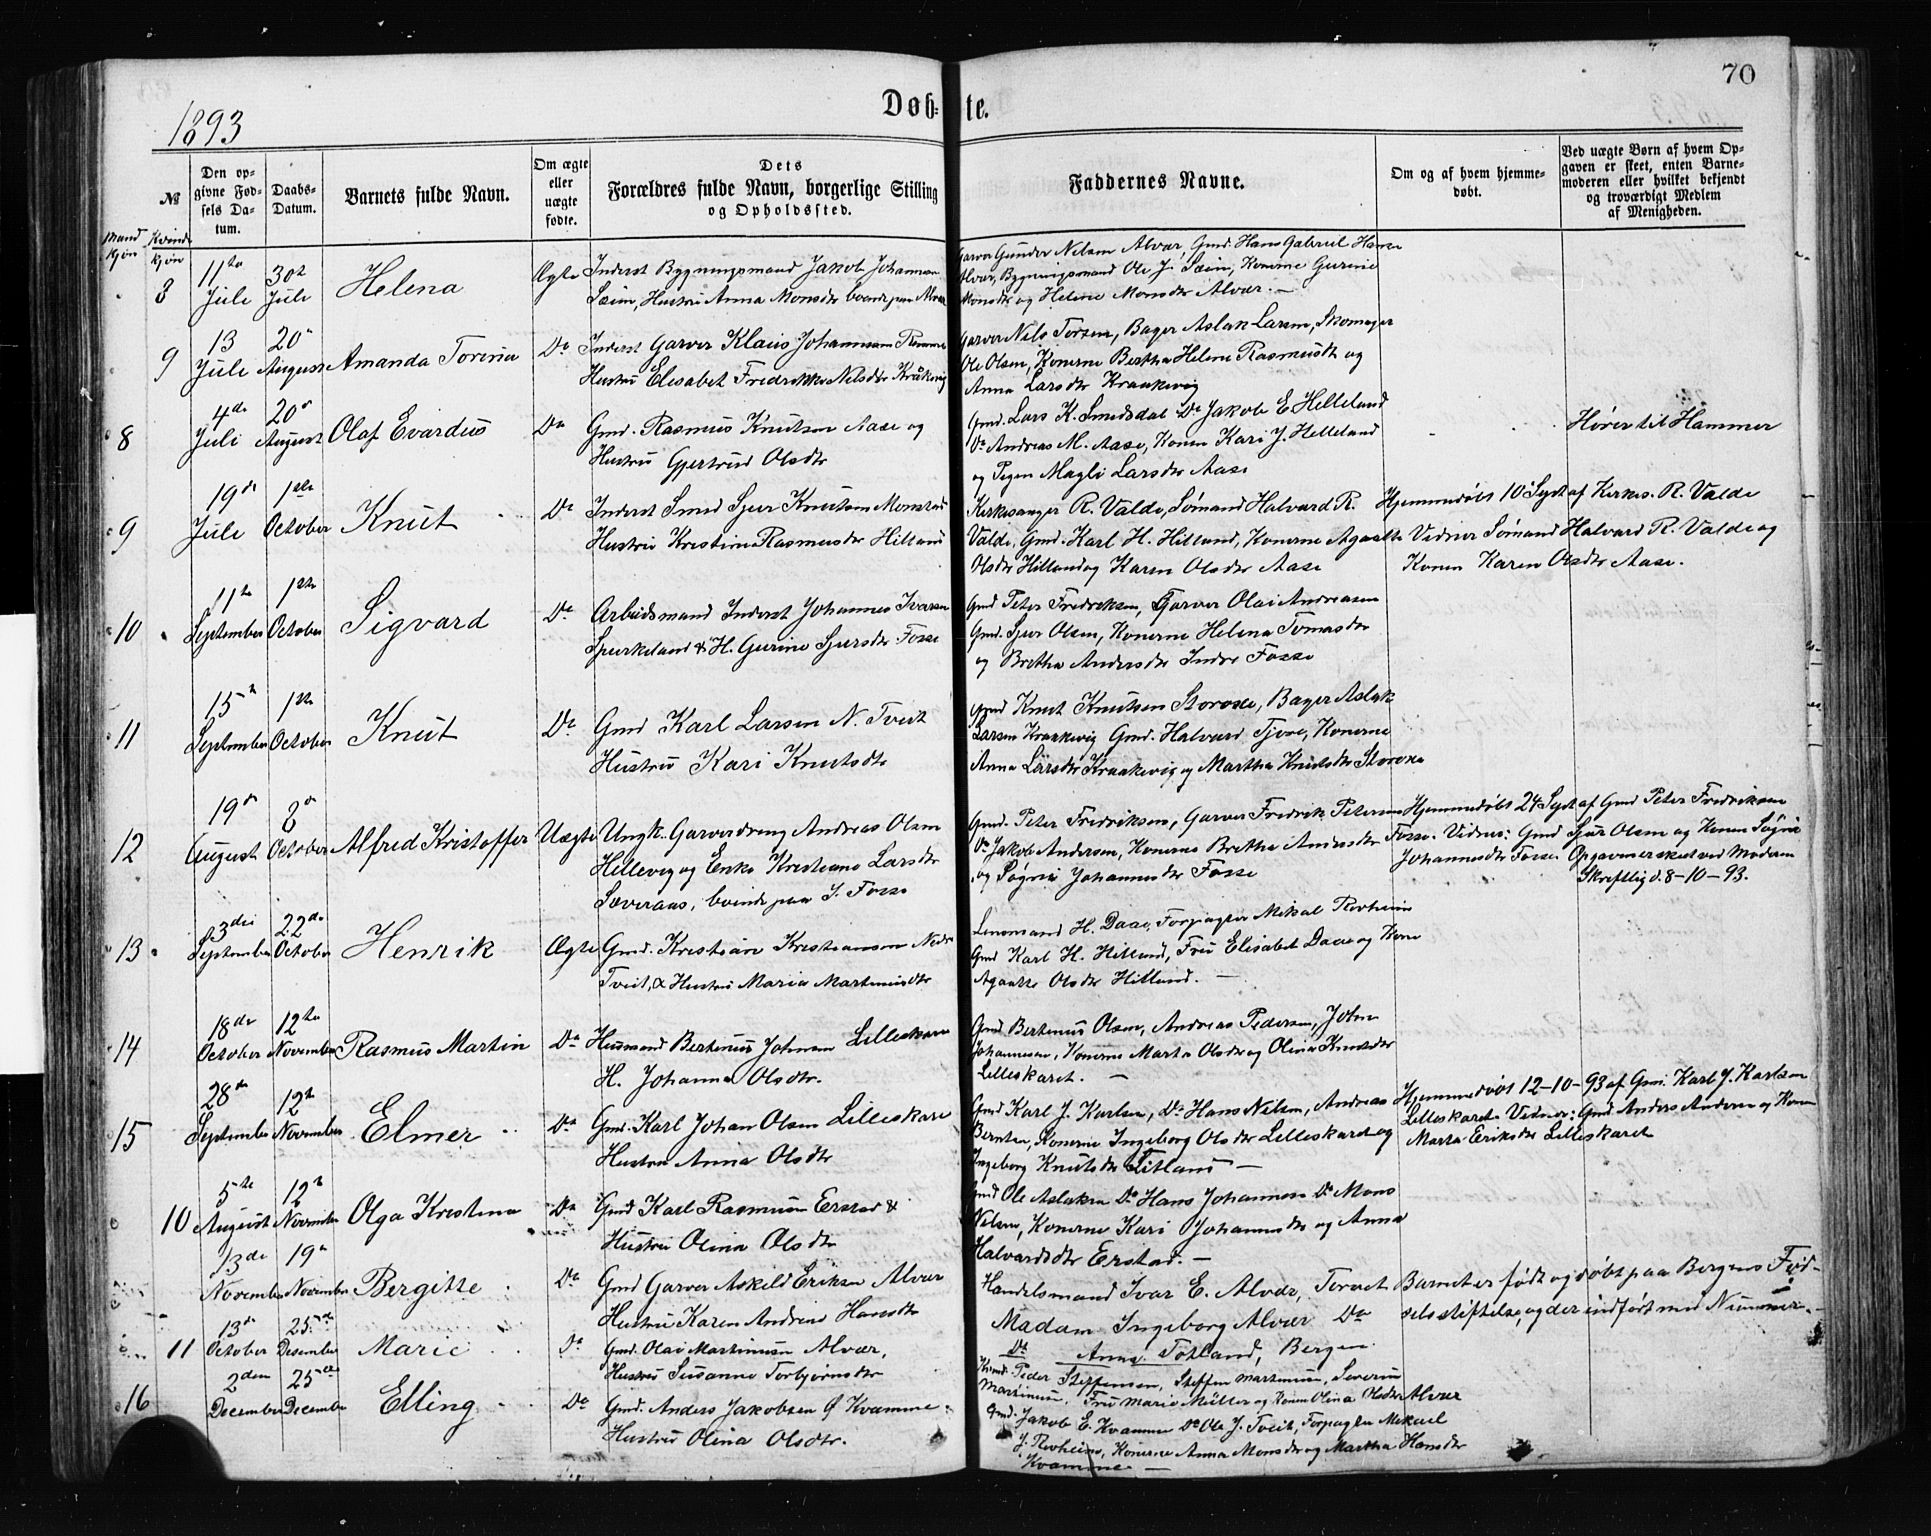 70
1893
Døb-te.
№
Den op-
givne Fød-
sels Da-
tum.
Daabs-
Datum.
Barnets fulde Navn.
Om ægte
eller
uægte
fødte.
Dets
Forældres fulde Navn, borgerlige Stilling
og Opholdssted.
Faddernes Navne.
Om og af hvem hjemme-
døbt.
Ved uægte Børn af hvem Op-
gaven er skeet, enten Barne-
moderen eller hvilket bekjendt
og troværdigt Medlem
af Menigheden.
Mand
kjøn
Kvinde
kjøn
8
11te
Juli
30te
Juli
Helena
Ægte
Inderst Bygningsmand Jakob Johannsen
Sæim, Hustru Anna Monsdtr boende paa Alvær
Garver Gunder Nilsen Alvær, Gmd. Hans Gabriel Hansen
Alvær, Bygningsmand Ole J. Sæim, Konerne Gurine
Monsdtr og Helene Monsdtr Alvær. —
9
13
Juli
20
August
Amanda Torena
Do
Inderst Garver Klaus Johannesen
Hustru Elisabet Fredrikke Nilsdtr Kråkevig
Garver Nils Torsen, Bager Aslak Larsen, Skomager
Ole Olsen, Konerne Bertha Helene Rasmusdtr og
Anna Larsdtr Kraakevig
8
4de
Juli
20
August
Olaf Evardus
Do
Gmd. Rasmus Knutsen Aase og
Hustru Gjertrud Olsdtr
Gmd. Lars K. Smedsdal Do Jakob E Helleland
Do Andreas M. Aase, Konen Kari J. Helleland
og Pigen Magli Larsdtr Aase
Hører til Hammer
9
19de
Juli
1ste
October
Knut
Do
Inderst Smed Sjur Knutsen Monstad
Hustru Kristine Rasmusdtr Hilland
Kirkesanger R. Valde, Sømand Halvard R.
Valde, Gmd. Karl H. Hilland, Konerne Agaatte
Olsdtr Hilland og Karen Olsdtr Aase
Hjemmedøbt 10 Sept af Kirkes. R. Valde
Vidner Sømand Halvard R. Valde og
Konen Karen Olsdtr Aase.
10
11te
September
1ste
October
Sigvard
Do
Arbeidsmand Inderst Johannes Iversen
Spurkeland & H. Gurine Sjursdtr Fosse
Gmd Peter Fredriksen, Garver Olai Andreasen
Gmd. Sjur Olsen, Konerne Helena Tomasdtr
og Bretha Andersdtr Indre Fosse
11
15
September
1ste
October
Knut
Do
Gmd Karl Larsen N. Tveit
Hustru Kari Knutsdtr
Gmd Knut Knutsen Storoxe, Bager Aslak
Larsen Kraakevig Gmd. Halvard Tjore, Konerne
Anna Larsdtr Kraakevig og Martha Knutsdtr Storoxe
12
19de
August
8de
October
Alfred Kristoffer
Uægte
Ungk. Garverdreng Andreas Olsen
Hillevig og Enke Kristiane Larsdtr
Sæveraas, boende paa I. Fosse
Gmd. Peter Fredriksen, Garver Fredrik Petersen
Do Jakob Andersen, Konerne Bretha Andersdtr
og Sygni Johannesdtr Fosse
Hjemmedøbt 24 Sept af Gmd Peter Fredriksen
Fosse. Vidner: Gmd Sjur Olsen og Konen Sygni
Johannesdtr Fosse. Opgaven er skeet ved Moderen
Skriftlig d. 8-10-93.
13
3die
September
22de
October
Henrik
Ægte
Gmd. Kristian Kristiansen Nedre
Tveit, & Hustru Maria Martinusdtr
Lensmand H. Daae, Forpagter Mikal Revheim
Gmd Karl H. Hilland, Fru Elisabet Daae og Kone
Agaatte Olsdtr Hilland. —
14
18de
October
12te
November
Rasmus Martin
Do
Husmand Bertinus Johnsen Lilleskaret
H. Johanna Olsdtr.
Gmd Bertinus Olsen, Andreas Pedersen, John
Johannesen, Konerne Marta Olsdtr og Olina Knutsdtr
Lilleskaret. —
15
28de
September
12te
November
Elmer
Do
Gmd. Karl Johan Olsen Lilleskaret
Hustru Anna Olsdtr
Gmd Karl J. Karlsen, Do Hans Nilsen, Andreas
Berntsen, Konerne Ingeborg Olsdtr Lilleskaret og
Ingeborg Knutsdtr Titland —
Hjemmedøbt 12-10-93 af Gmd. Karl J. Karlsen
Lilleskaret. Vidner: Gmd Anders Andersen og Konen
Marta Eriksdtr Lilleskaret
10
5te
August
12
November
Olga Kristina
Do
Gmd Karl Rasmusen Erstad &
Hustru Olina Olsdtr
Gmd Ole Aslaksen Do Hans Johannesen Do Mons
Nilsen, Konerne Kari Johannesdtr og Anna
Halvardsdtr Erstad. —
13de
November
19
November
Bergitte
Do
Gmd Garver Askild Eriksen Alvær
Hustru Karen Andrine Hansdtr
Handelsmand Ivar E. Alvær, Torvet
Madam Ingeborg Alvær Do
Do Anna Totland, Bergen
Barnet er født og døbt paa Bergens Fød-
selsstiftelse, og der indført med Nummer.
11
13de
October
25de
Desember
Marie
Do
Gmd. Olai Martinusen Alvær,
Hustru Susanne Torbjørnsdtr
Peder Steffensen, Steffen Martinusen, Severin
Martinusen, Fru Marie Müller og Konen Olina Olsdtr Alvær
16
2den
December
25de
December
Elling
Do
Gmd. Anders Jakobsen Ø Kvamme
Hustru Olina Olsdtr.
Gmd. Jakob E. Kvamme Do Ole J. Tveit, Forpagter Mikael
J. Revheim, Konerne Anna Monsdtr og Martha Hansdtr
Kvamme —